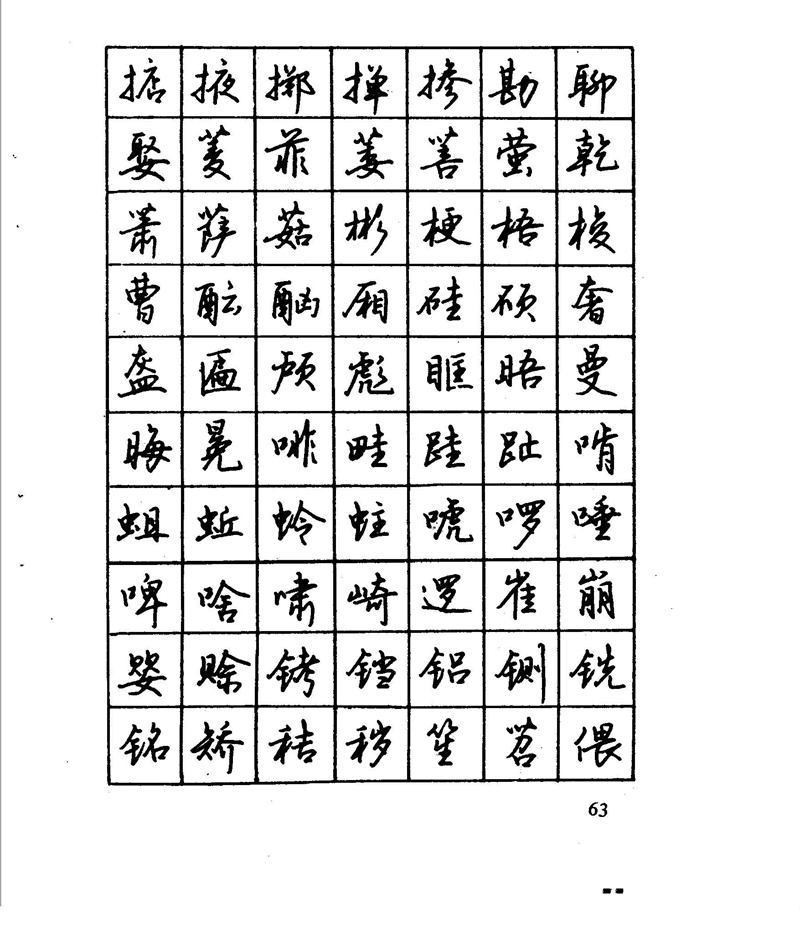 掂掖掷掸掺勘聊
娶菱菲萎菩萤乾
萧萨菇彬梗梧梭
曹酝酗厢硅硕奢
盔匾颅彪眶晤曼
晦冕啡畦跬趾啃
蛆蚯蛉蛀唬啰唾
啤啥啸崎逻崔崩
婴赊铐铛铝铡铣
铭矫秸秽笙笤偎
63